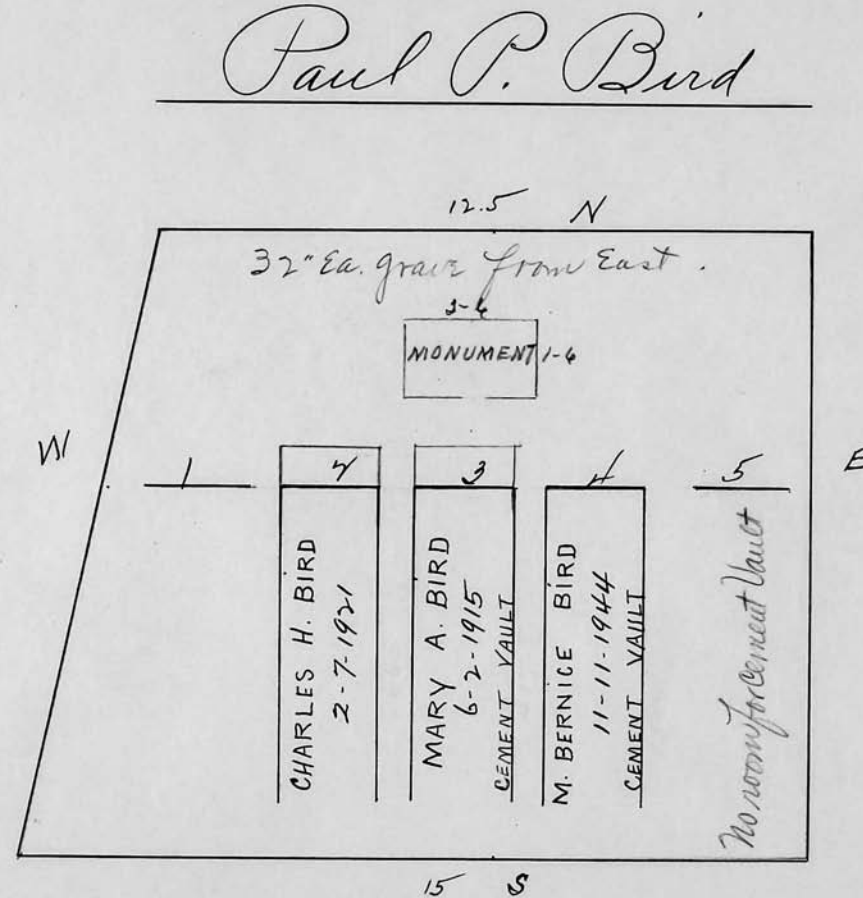 Paul P. Bird
12.5 N
32" Ea. grave from East.
3-6
MONUMENT 1-6
W
E
1 2 3 4 5
CHARLES H. BIRD
2-7-1921
MARY A. BIRD
6-2-1915
CEMENT VAULT
M. BERNICE BIRD
11-11-1944
CEMENT VAULT
No room for cement Vault
15 S